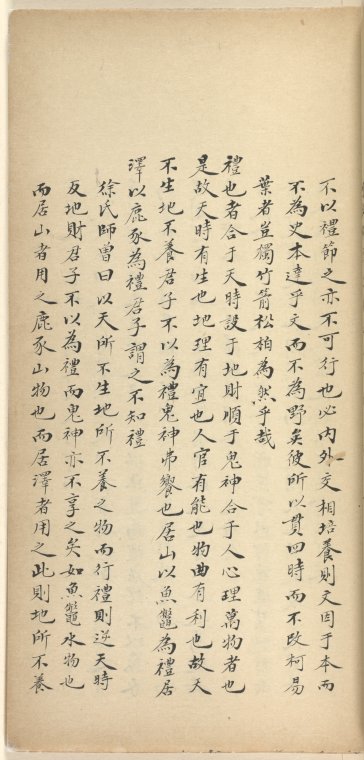 不以禮節之亦不可行也必内外交相培養則文因于本而
不為史本達乎文而不為野矣彼所以貫四時而不改柯易
葉者豈獨竹箭松柏為然乎哉
禮也者合于天時設于地財順于鬼神合于人心理萬物者也
是故天時有生也地理有宜也人官有能也物曲有利也故天
不生地不養君子不以為禮鬼神弗饗也居山以魚鼈為禮居
澤以鹿豕為禮君子謂之不知禮
徐氏師曾曰以天所不生地所不養之物而行禮則逆天時
及地財君子不以為禮而鬼神亦不享之矣如魚鼈水物也
而居山者用之鹿豕山物也而居澤者用之此則地所不養